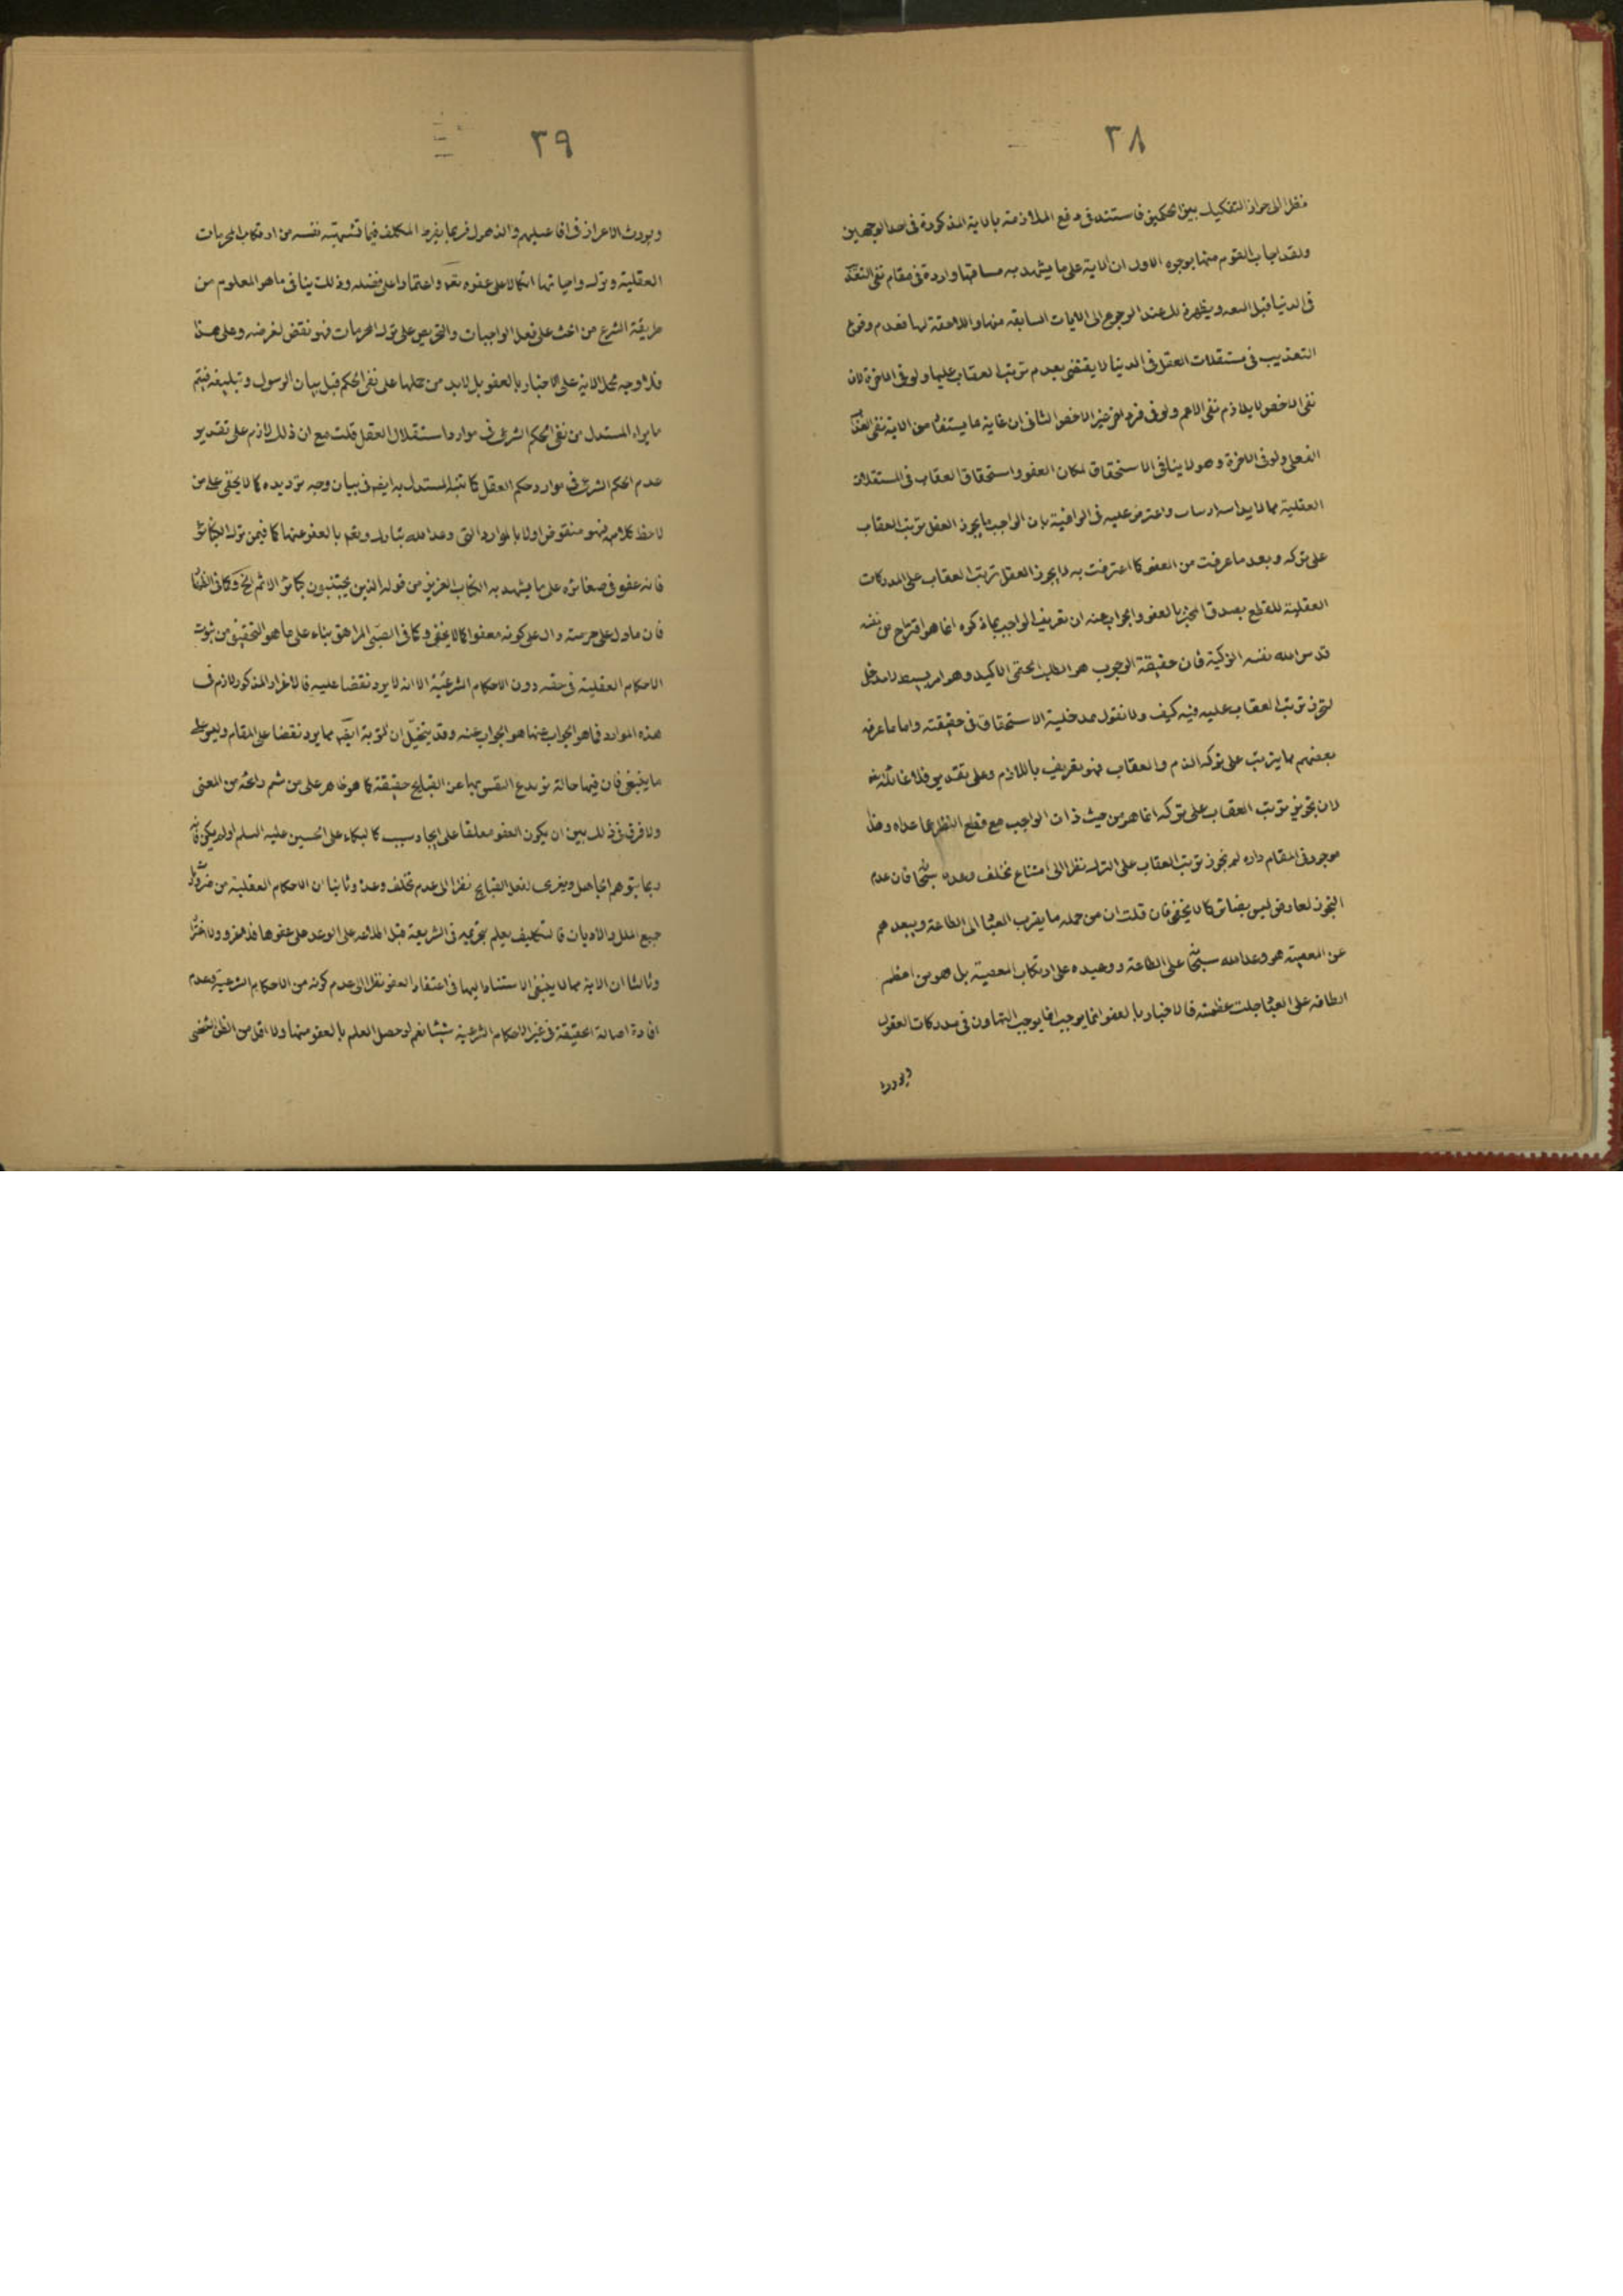 ٣٨
نظرا الى جواز التفكيك بين الحكمين فاستند فى دفع الملازمة بالاية المذكورة فى احد الوجهين
ولقد اجاب القوم عنها بوجوه الاول ان الاية على ما يشهد به مساقها واردة فى مقام نفى التعذيب
فى الدنيا قبل البعثه ويظهر ذلك عند الرجوع الى الايات السابقه منها واللاحقة لها فعدم وقوع
التعذيب فى مستقلات العقل فى الدنيا لا يقتضى بعدم ترتب العقاب عليها ولو فى الاخرة لان
نفى الاخص لا يلازم نفى الاعم ولو فى فرد اخر غير الاخص الثانى ان غاية ما يستفاد من الاية نفى العذاب
الفعلى ولو فى الاخرة وهو لا ينافى الاستحقاق لمكان العفو واستحقاق العقاب فى المستقلات
العقلية مما لا يدانيه ارتياب واعترض عليه فى الوافية بان الواجب ما يجوز العقل ترتب العقاب
على تركه وبعد ما عرفت من العفو كما اعترفت به لا يجوز العقل ترتب العقاب على المدركات
العقلية للقطع بصدق المخبر بالعفو والجواب عنه ان تعريف الواجب بما ذكره انما هو اقتراح من نفسه
قدس الله نفسه الزكية فان حقيقة الوجوب هو الطلب الحتمى الاكيد وهو امر بسيط لا مدخل
لتجويز ترتب العقاب عليه فيه كيف ولا نقول بمدخلية الاستحقاق فى حقيقته واما ما عرفه
بعضهم بما يترتب على تركه الذم والعقاب فهو تعريف باللازم وعلى تقديره فلا غائلة فيه
لان تجويز ترتب العقاب على تركه انما هو من حيث ذات الواجب مع قطع النظر عما عداه وهذا
موجود فى المقام وان لم يجوز ترتب العقاب على الترك نظرا الى امتناع تخلف وعده سبحانه فان عدم
التجويز لعارض ليس بضائر كما لا يخفى فان قلت ان من جملة ما يقرب العباد الى الطاعة ويبعدهم
عن المعصية هو وعد الله سبحانه على الطاعة ووعيده على ارتكاب المعصية بل هو من اعظم
الطافه على العباد جلت عظمته فالاخبار بالعفو انما يوجب التهاون فى مدركات العقول
ويورث
٣٩
ويورث الاعراز فى افاعيلهم والذهول فربما يفرط المكلف فيما تشتهيه نفسه من ارتكاب المحرمات
العقلية وترك واجباتها اتكالا على عفوه تعالى واعتمادا على فضله وذلك ينافى ما هو المعلوم من
طريقة الشرع من الحث على فعل الواجبات والتحريص على ترك المحرمات فهو نقض لغرضه وعلى هذا
فلا وجه لحمل الاية على الاخبار بالعفو بل لابد من حملها على نفى الحكم قبل بيان الرسول وتبليغه فيتم
ما يراه المستدل من نفى الحكم الشرعى فى موارد استقلال العقل قلت مع ان ذلك لازم على تقدير
عدم الحكم الشرعى فى موارد حكم العقل كما تنبه المستدل به ايضا فى بيان وجه ترديده كما لا يخفى على من
لاحظ كلامه فهو منقوض اولا بالموارد التى وعد الله تبارك وتعالى بالعفو عنها كما فيمن ترك الكبائر
فانه عفو فى صغائره على ما يشهد به الكتاب العزيز من قوله الذين يجتنبون كبائر الاثم الخ وكما فى الظهار
فان ما دل على حرمته دال على كونه معفوا كما لا يخفى وكما فى الصبى المراهق بناء على ما هو التحقيق من ثبوت
الاحكام العقلية فى حقه دون الاحكام الشرعية الا انه لا يرد نقضا عليه فالاغراء المذكور لازم فى
هذه الموارد فما هو الجواب عنها هو الجواب عنه وقد يتخيل ان التوبة ايضا مما يرد نقضا على المقام وليس على
ما ينبغى فان فيها حالة تردع النفس بها عن القبايح حقيقة كما هو ظاهر على من شم رائحة من المعنى
ولا فرق فى ذلك بين ان يكون العفو معلقا على ايجاد سبب كالبكاء على الحسين عليه السلم او لم يكن فانه
ربما يتوهم الجاهل ويغرى بفعل القبايح نظرا الى عدم تخلف وعده وثانيا ان الاحكام العقلية من ضروريات
جميع الملل والاديان فالتكليف يعلم بتحريمه فى الشريعة قبل اطلاعه على الوعد على عفوها فلا غرو ولا اغترار
وثالثا ان الاية مما لا ينبغى الاستناد اليها فى اعتقاد العفو نظرا الى عدم كونه من الاحكام الشرعية وعدم
افادة اصالة الحقيقة فى غير الاحكام الشرعية شيئا نعم لو حصل العلم بالعفو منها ولا اقل من الظن الشخصى